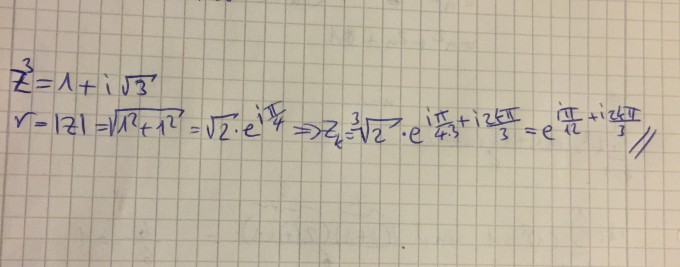 z³ = 1 + i√3
r = |z| = √(1² + 1²) = √2 · e^(iπ/4) ⇒ z_k = ³√2 · e^(iπ/(4·3) + i2kπ/3) = e^(iπ/12 + i2kπ/3) //